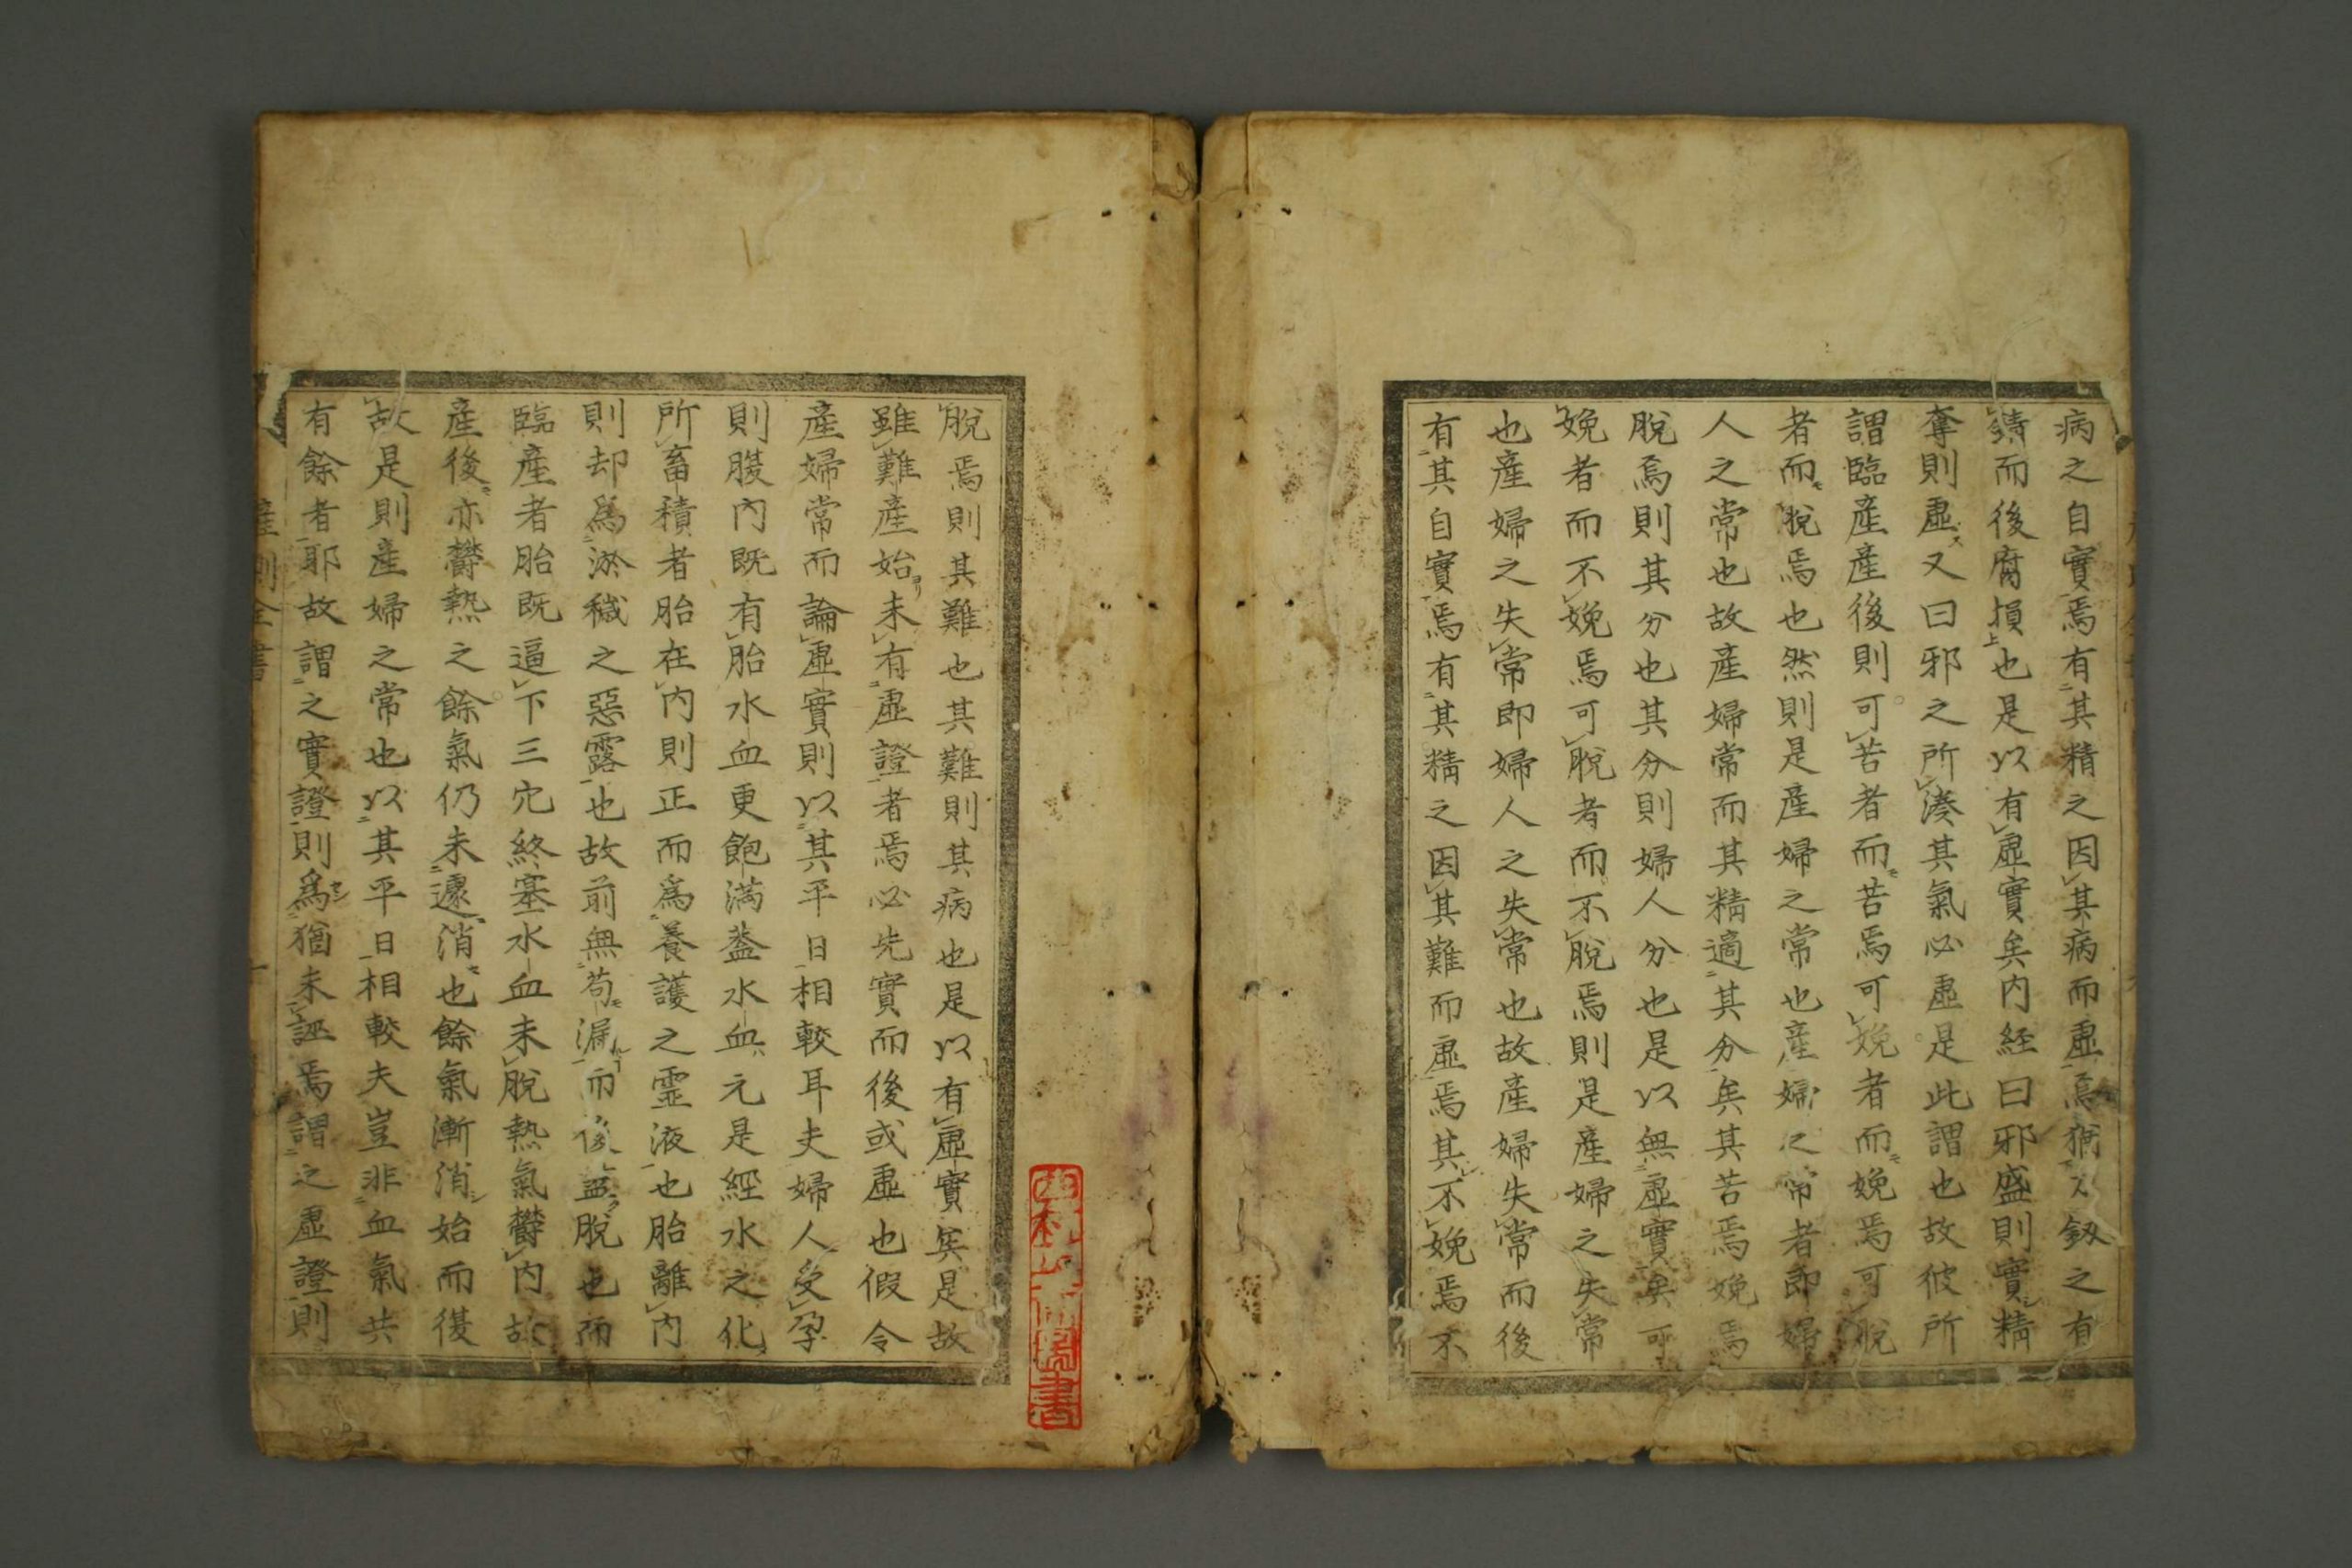 病之自實焉有其精之因其病而虛焉猶刃釼之有
鋳而後腐損也是以有虛實矣内経曰邪盛則實精
奪則虛又曰邪之所湊其氣必虛是此謂也故彼所
謂臨産産後則可苦者而苦焉可娩者而娩焉可脫
者而脫焉也然則是産婦之常也産婦之常者即婦
人之常也故産婦常而其精適其分矣其苦焉娩焉
脫焉則其分也其分則婦人分也是以無虛實矣可
娩者而不娩焉可脫者而不脫焉則是産婦之失常
也産婦之失常即婦人之失常也故産婦失常而後
有其自實焉有其精之因其難而虛焉其不娩焉不
脫焉則其難也其難則其病也是以有虛實矣是故
雖難産始未有虛證者焉必先實而後或虛也假令
産婦常而論虛實則以其平日相較耳夫婦人受孕
則腹内既有胎水血更飽満葢水血元是經水之化
所畜積者胎在内則正而爲養護之靈液也胎離内
則却爲淤穢之惡露也故前無苟漏而後盡脫也而
臨産者胎既逼下三穴終塞水血未脫熱氣欝内故
産後亦欝熱之餘氣仍未遽消也餘氣漸消始而復
故是則産婦之常也以其平日相較夫豈非血氣共
有餘者耶故謂之實證則爲猶未誣焉謂之虛證則
産則全書
圖書